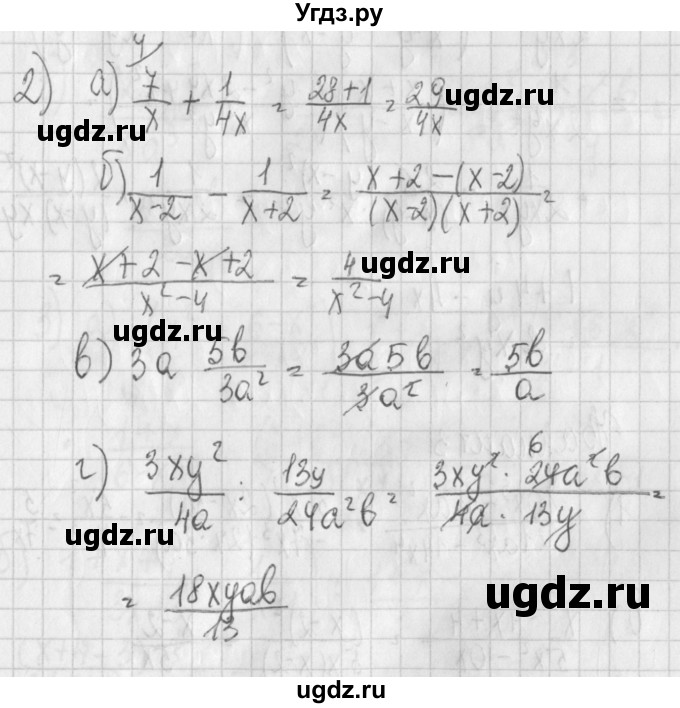 Угдз.ру
4
2) а) 7/x + 1/4x = 28+1/4x = 29/4x
ugdz.ru ugdz.ru
б) 1/x-2 - 1/x+2 = x+2-(x-2)/(x-2)(x+2) =
= x+2-x+2/x²-4 = 4/x²-4
ugdz.ru ugdz.ru
в) 3a 5b/3a² = 3a5b/3a² = 5b/a
ugdz.ru ugdz.ru
г) 3xy²/4a : 13y/24a²b² 3xy²·24a²b/4a·13y =
6
ugdz.ru ugdz.ru
= 18xyab/13
ugdz.ru
ugdz.ru